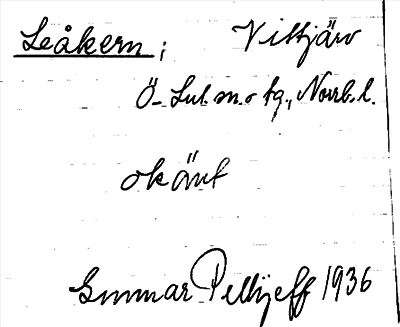 Leåkern; Vittjärv
Ö-Lul. m. o tg., Norrb. l.
okänt
Gunnar Pellijeff 1936